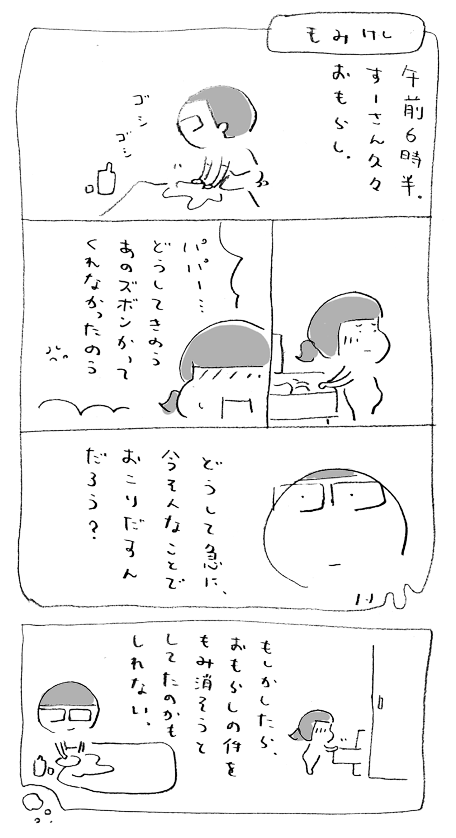 もみけし
午前6時半。
すーさん久々
おもらし。
ゴシ
ゴシ
パパー…
どうしてきのう
あのズボンかって
くれなかったのう
どうして急に、
今そんなことで
おこりだすん
だろう?
もしかしたら、
おもらしの件を
もみ消そうと
してたのかも
しれない。